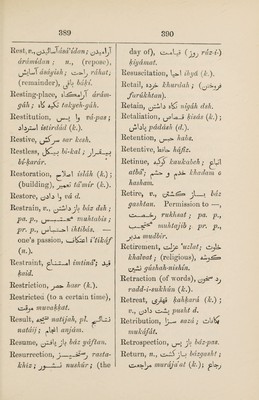 389
390
Rest, v., آسودن ásúdan; آرمیدن
árámídan ; n., (repose),
آسایش ásáyish; راحت ráhat;
(remainder), باقی bákí.
Resting-place, آرامگاه árám-
gáh; تکیه گاه takyeh-gáh.
Restitution, وا پس vá-pas;
استرداد istirdád (k.).
Restive, سرکش sar kesh.
Restless, بیکل bí-kal; بیقرار
bí-karár.
Restoration, اصلاح isláh (k.);
(building), تعمیر ta'mír (k.).
Restore, وا دادن vá d.
Restrain, v., باز داشتن báz dsh;
pa. p., محتبس muhtabis;
pr. p., احتباس ihtibás. —
one's passion, اعتکاف i'tikáf
(n.).
Restraint, امتناع imtiná'; قید
kaid.
Restriction, حصر hasr (k.).
Restricted (to a certain time),
موقت murakkat.
Result, نتیجه natíjah, pl. نتایج
natáij; انجام anjám.
Resume, باز یافتن báz yáftan.
Resurrection, رستخیز rasta-
khíz; نشور nushúr; (the
day of), روز قیامت rúz-i-
kiyámat.
Resuscitation, احیا ihyá (k.).
Retail, خرده khurdah; (فروختن
furúkhtan).
Retain, نگاه داشتن nigáh dsh.
Retaliation, قصاص kisás (k.);
پاداش pádásh (d.).
Retention, حصر hasr.
Retentive, حافظ háfiz.
Retinue, کوکبه kaukabah; اتباع
atbá'; خدم و حشم khadam o
hasham.
Retire, v., باز گشتن báz
gashtan. Permission to —,
رخصت rukhsat; pa. p.,
محتجب muhtajib; pr. p.,
مدبر mudbir.
Retirement, عزلت 'uzlat; خلوت
khalvat; (religious), گوشه
نشین gúshah-nishín.
Retraction (of words), رد سخن
radd-i-sukhún (k.).
Retreat, قهقرا kahkará (k.);
v., پشت دادن pusht d.
Retribution, سزا nazá; مکافات
mukáfát.
Retrospection, باز پس báz-pas.
Return, n., بازگشت bázgasht;
مراجعت murája'at (k.); رجوع